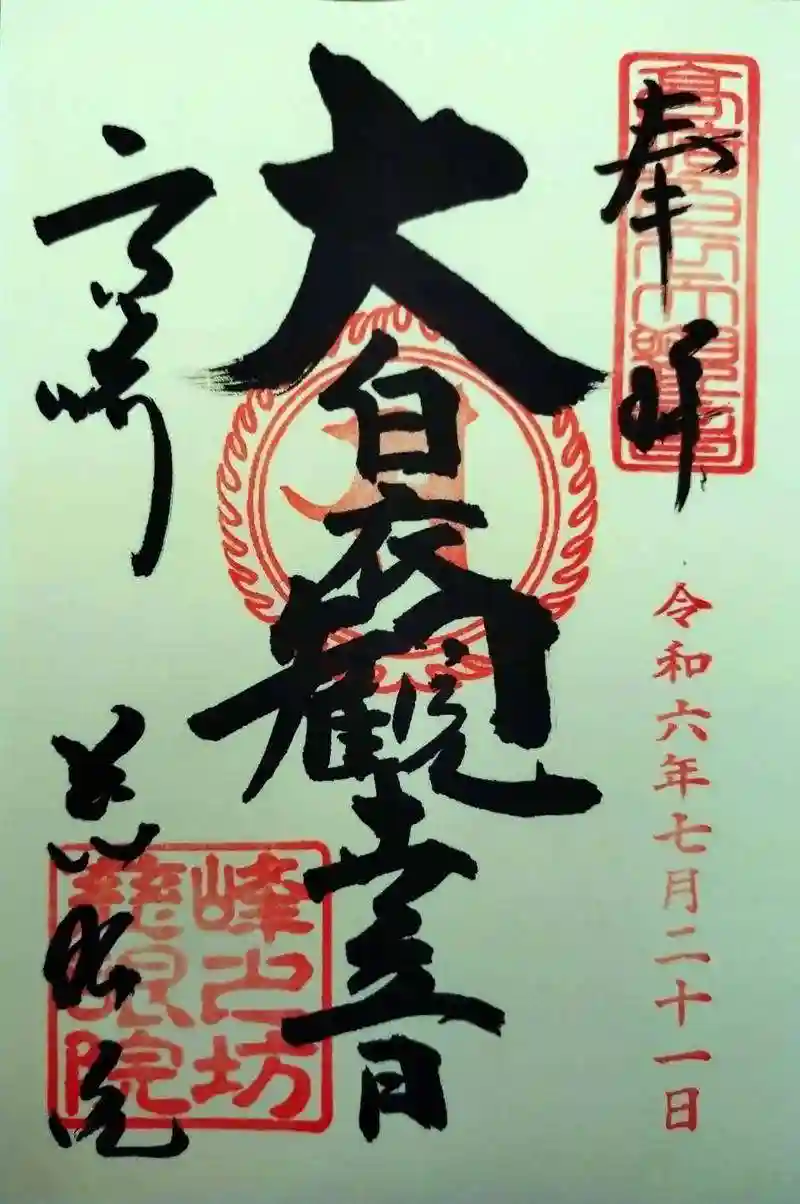 奉拝
令和六年七月二十一日
大白衣観世音
高崎
慈眼院
峰之坊
慈眼院